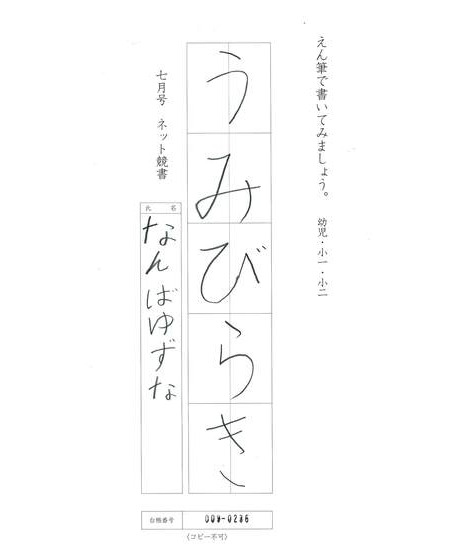 えん筆で書いてみましょう。 幼児・小一・小二
うみびらき
七月号 ネット競書
氏名
なんばゆずな
台帳番号 00W-0236
〈コピー不可〉